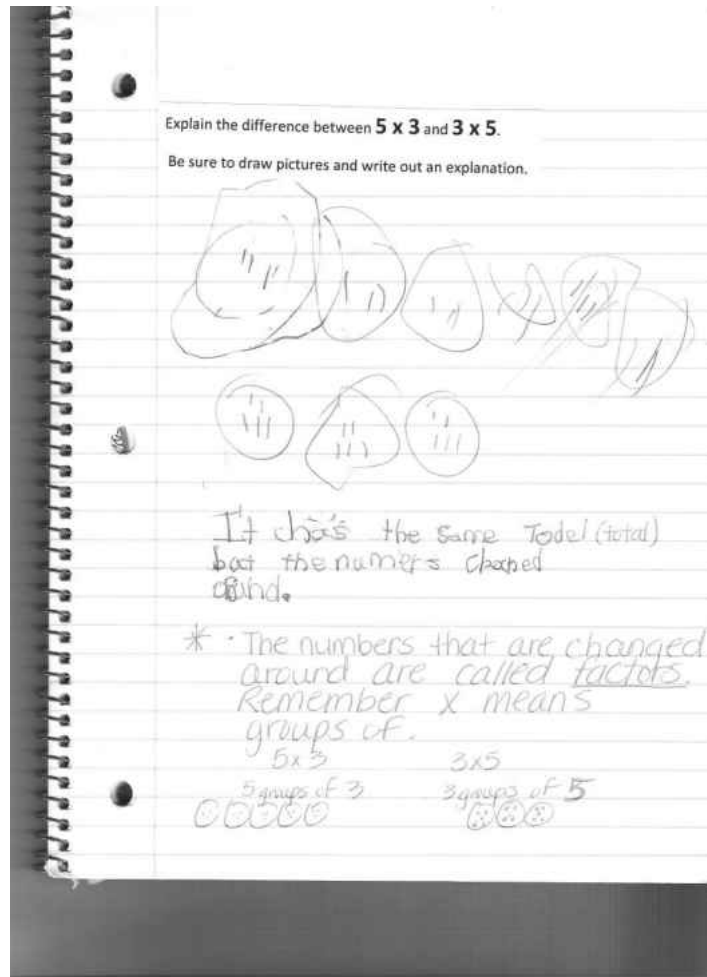 Explain the difference between 5 x 3 and 3 x 5.
Be sure to draw pictures and write out an explanation.
It the same Todel (total)
bat the numers
* · The numbers that are changed
around are called factors.
Remember x means
groups of.
5x3 3x5
5 groups of 3 3 groups of 5